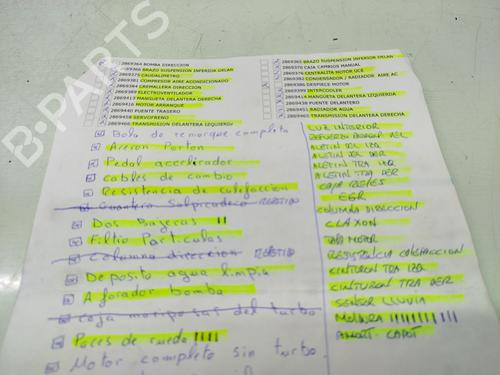 2869364 BOMBA DIRECCION
2869366 BRAZO SUSPENSION INFERIOR DELAN
2869375 CAUDALIMETRO
2869381 COMPRESOR AIRE ACONDICIONADO
2869384 CREMALLERA DIRECCION
2869387 ELECTROVENTILADOR
MANGUETA DELANTERA DERECHA
2869410 MOTOR ARRANQUE
2869416 PUENTE TRASERO
2869458 SERVOFRENO
2869460 TRANSMISION DELANTERA IZQUIERDA
Bola de remorque completa
Porton
Pedal acelerador
cables de cambio
Resistencia de calefaccion
Guantera Salpradeco REPETIDO
Dos Bajeras II
Filtio Particulas
Columna direccion REPETIDO
Deposito agua limpia
Aforador bomba
Caja mariposas del turbo
Paces de rueda IIII
Motor completo sin turbo
2869365 BRAZO SUSPENSION INFERIOR DELAN
2869370 CAJA CAMBIOS MANUAL
2869376 CENTRALITA MOTOR UCE
2869382 CONDENSADOR / RADIADOR AIRE AC
2869386 DESPIECE MOTOR
2869399 INTERCOOLER
MANGUETA DELANTERA IZQUIERDA
2869438 PUENTE DELANTERO
2869451 RADIADOR AGUA
TRANSMISION DELANTERA DERECHA
LUZ INTERIOR
ALETIN DEL IZQ
ALETIN DEL DER
ALETIN TRA IZQ
ALETIN TRA DER
EGR
COLUMNA DIRECCION
CLAXON
MOTOR
RESISTENCIA CALEFACCION
CINTURON TRA IZQ
CINTURON TRA DER
SENSOR LLUVIA
MOLDURA IIIIIIIIII
AMORT. CAPOT